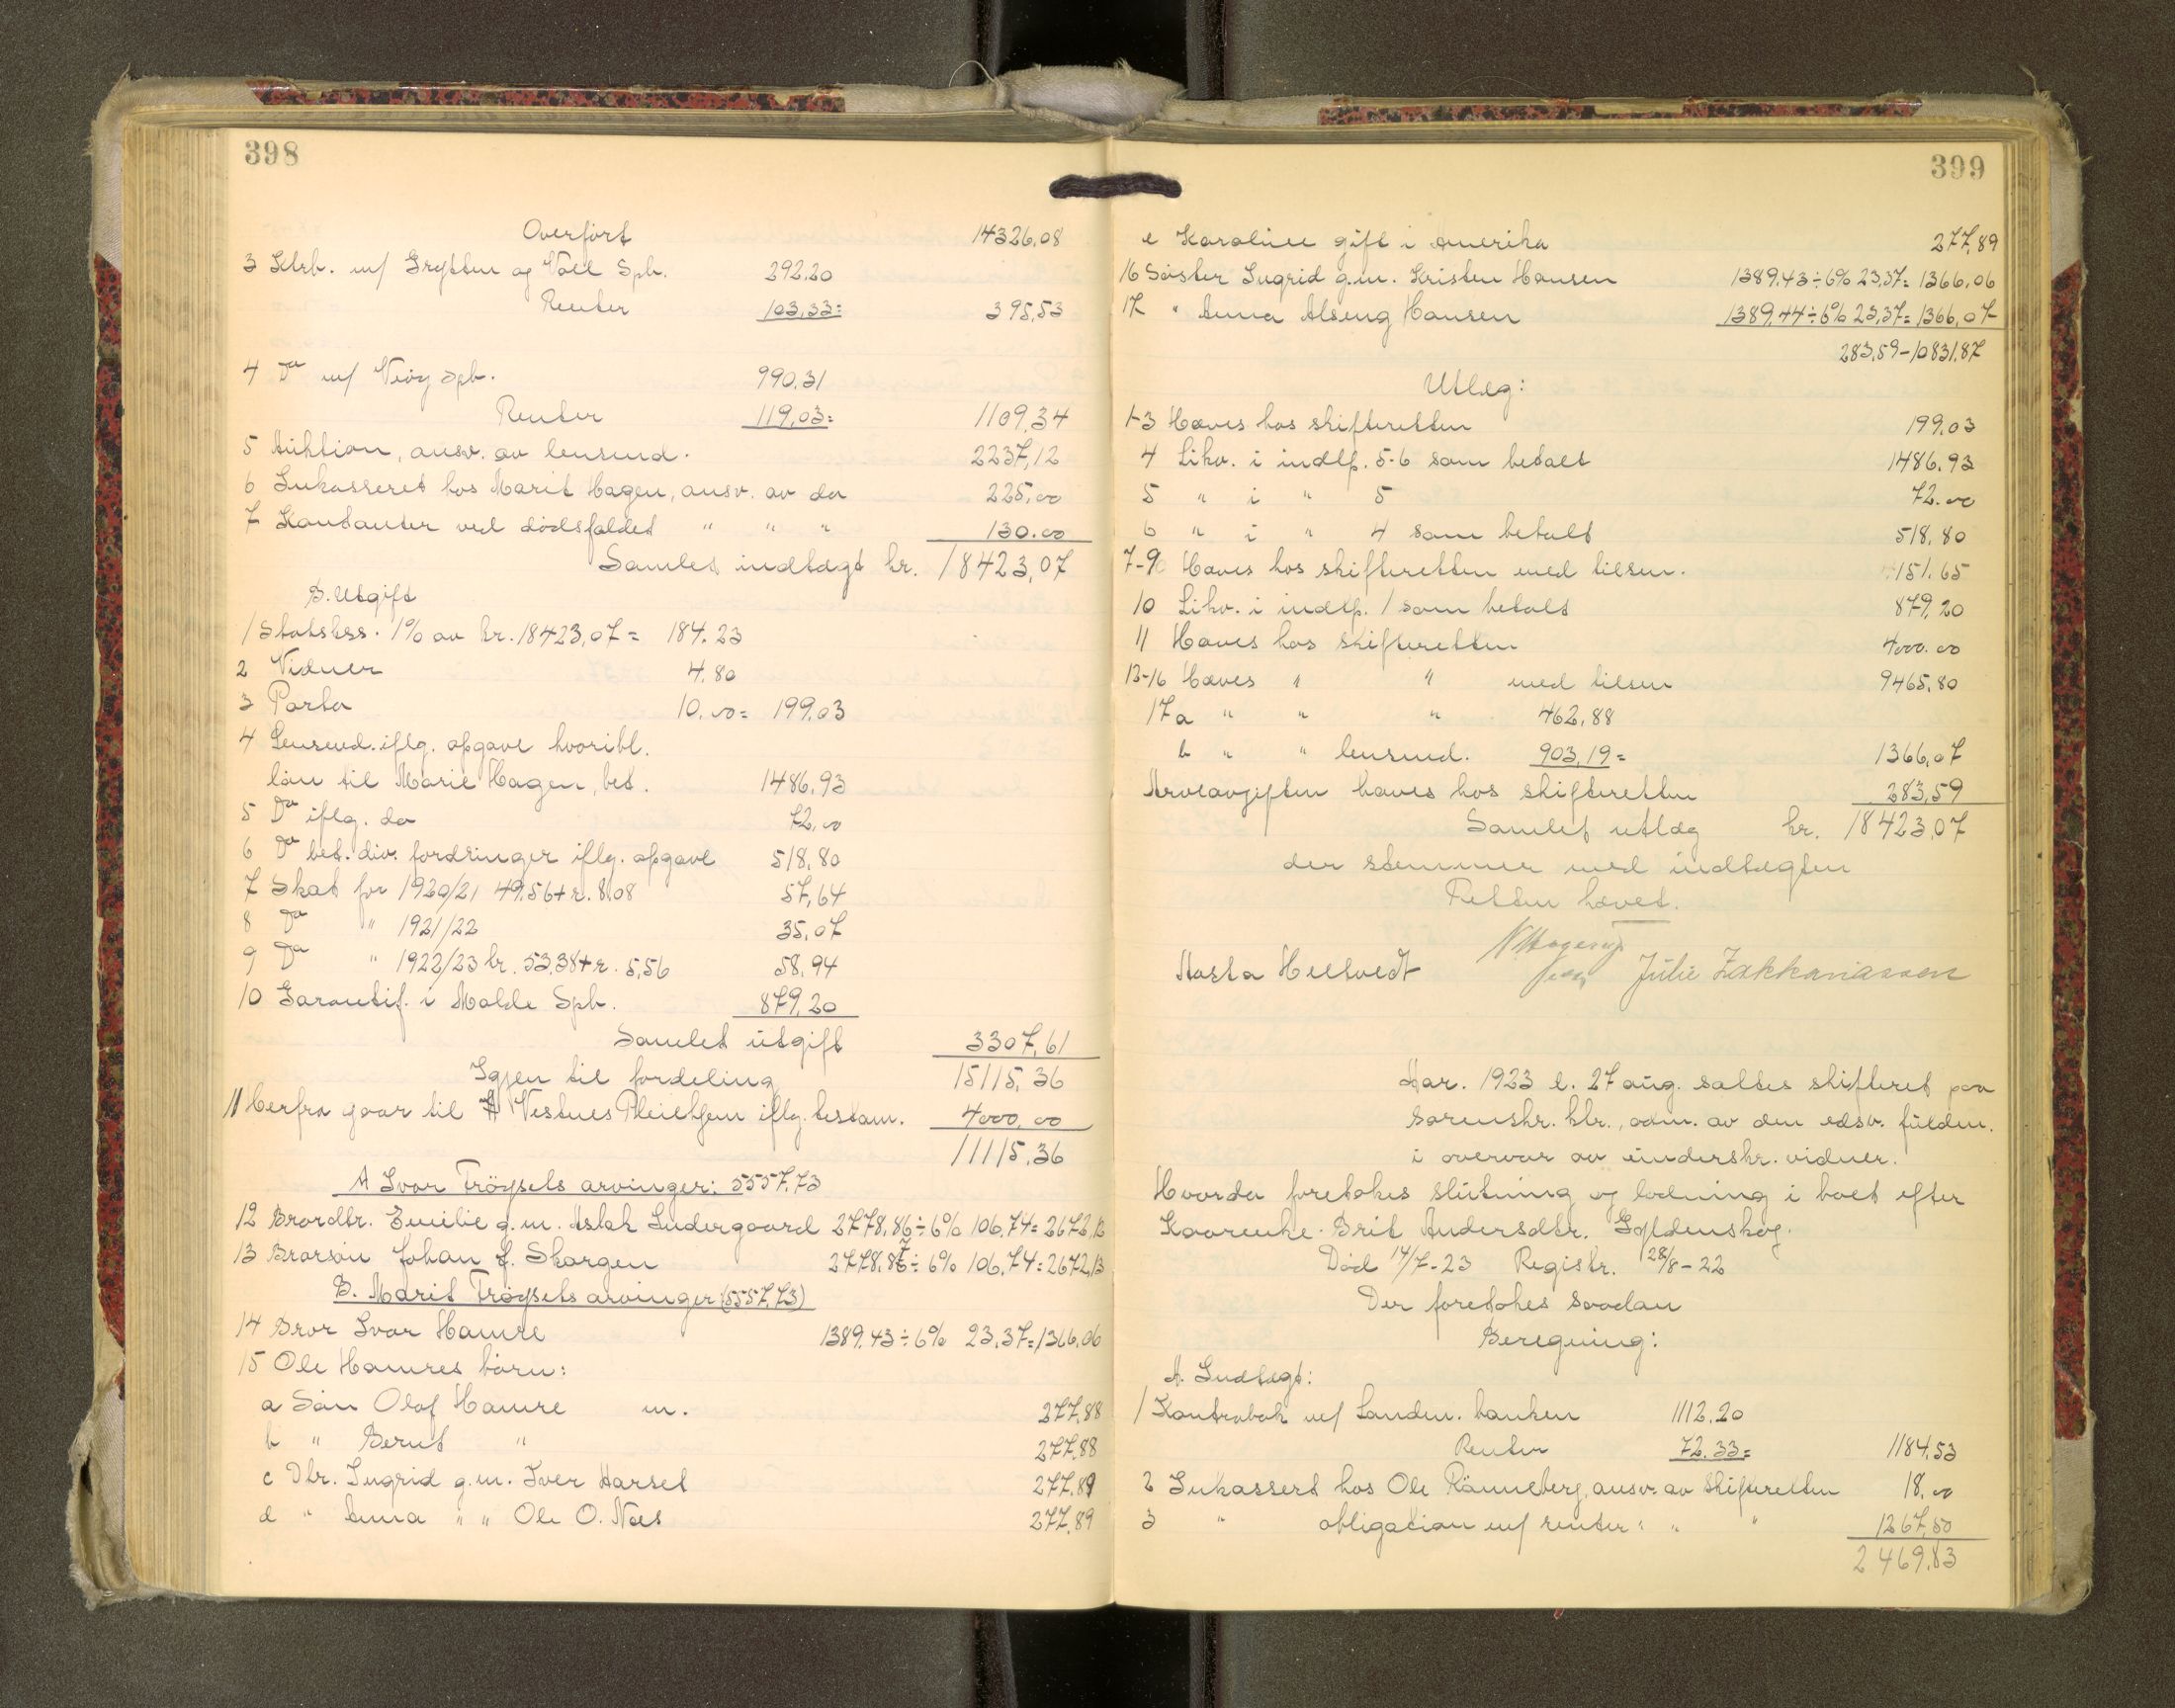 398
Overført 14326,08
3 Ktrb. m/ Grytten og Voll Spb. 292.20
Renter 103,33= 395,53
4 Do m/ Veøy Spb. 990.31
Renter 119,03= 1109,34
5 Auktion, ansv. av lensmd. 2237,12
6 Inkasseret hos Marit Hagen, ansv. av do 225,00
7 Kontanter ved dødsfaldet " " " 130.00
Samlet indtægt kr. 18423,07
B. Utgift
1 Statskss. 1% av kr. 18423,07= 184.23
2 Vidner 4.80
3 Porto 10.00= 199.03
4 Lensmd. iflg. opgave hvoribl.
lån til Marie Hagen, bet. 1486,93
5 Do iflg. do 72,00
6 Do bet. div. fordringer iflg. opgave 518,80
7 Skat for 1920/21 49.56+r. 8.08 57,64
8 Do " 1921/22 35,07
9 Do " 1922/23 kr. 53,38+r. 5,56 58,94
10 Garantif. i Molde Spb. 879,20
Samlet utgift 3307,61
Igjen til fordeling 15115,36
11 Herfra gaar til Vestnes Pleiehjem iflg. testam. 4000,00
11115,36
A Ivar Trøysets arvinger: 5557,73
12 Brordtr. Emilie g.m. Aslak Sudergaard 2778,86÷6% 106,74=2672,12
13 Brorsøn Johan J. Skorgen 2778.87÷6% 106.74=2672,13
B. Marit Trøysets arvinger (5557,73)
14 Bror Ivar Hamre 1389.43÷6% 23,37=1366,06
15 Ole Hamres børn:
a Søn Olaf Hamre m. 277,88
b " Bernt " 277,88
c Dtr. Ingrid g.m. Iver Harset 277,89
d " Anna " " Ole O. Næs 277,89
399
e Karoline gift i Amerika 277,89
16 Søster Ingrid g.m. Kristen Hansen 1389,43÷6% 23,37=1366,06
17 " Anna Alseng Hansen 1389,44÷6% 23,37=1366,07
283,59-10831.87
Utlæg:
1-3 Hæves hos skifteretten 199.03
4 Likv. i indtp. 5-6 som betalt 1486.93
5 " i " 5 72.00
6 " i " 4 som betalt 518,80
7-9 Hæves hos skifteretten med tilsm. 151.65
10 Likv. i indtp. 1 som betalt 879,20
11 Hæves hos skifteretten 4000.00
13-16 Hæves " " med tilsm 9465,80
17 a " " " 462,88
b " " lensmd. 903,19= 1366,07
Arveavgiften hæves hos skifteretten 283,59
Samlet utlæg kr. 18423,07
der stemmer med indtægten
Retten hævet.
Aasta Heltvedt Julie Zakkariassen
Aar. 1923 d. 27 aug. sattes skifteret paa
sorenskr. ktr., adm. av den edsv. fuldm.
i overvær av underskr. vidner.
Hvorda foretokes slutning og lodning i boet efter
Kaarenke Brit Andersdtr. Gyldenskog.
Død 14/7-23 Registr. 28/8-22
Der foretokes saadan
Beregning:
A. Indtægt:
1 Kontrabok m/ Landm. banken 1112.20
Renter 72.33= 1184,53
2 Inkassert hos Ole Rønneberg, ansv. av skifteretten 18,00
3 " obligation m/ renter " " " 1267,30
2469,83